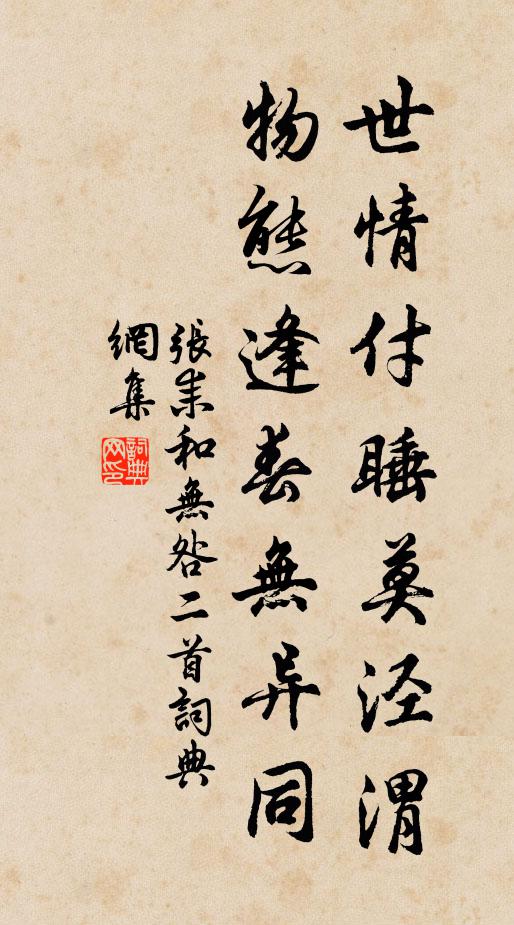 世情付睡莫泾渭
物態逢春無异同
張耒和無咎二首詞典
網集
詞典网印